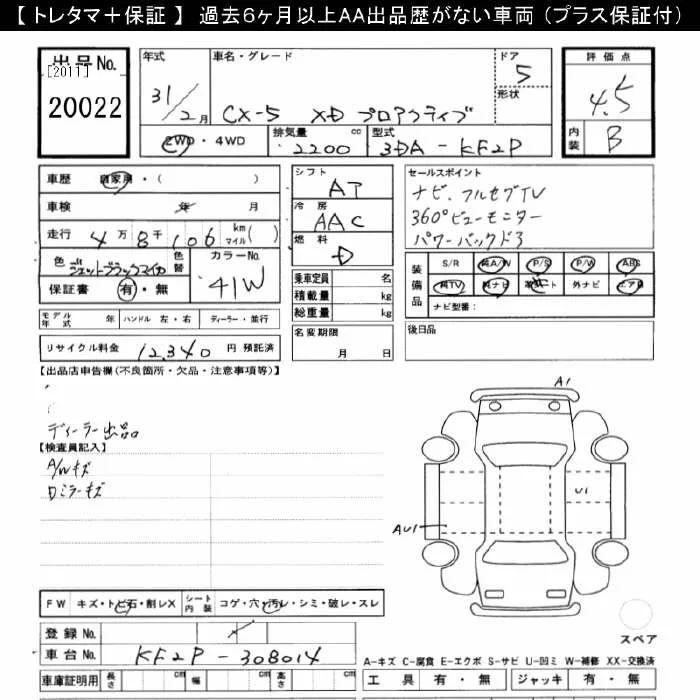 【 トレタマ＋保証 】 過去6ヶ月以上AA出品歴がない車両 (プラス保証付)
出品No.
[2011]
20022
年式 車名・グレード ドア 5
31/2月 CX-5 XD プロアクティブ 形状
2WD・4WD 排気量 2200 cc 型式 3DA-KF2P
評価点 4.5
内装 B
車歴 自家用・( )
車検 年 月
走行 4万8千106 km マイル( )
色 ジェットブラックマイカ 色替 カラーNo. 41W
保証書 有・無
モデル年式 年 ハンドル 左・右 ディーラー・並行
リサイクル料金 12,340 円 預託済
シフト AT
冷房 AAC
燃料 D
乗車定員 名
積載量 kg
総重量 kg
名変期限 月 日
セールスポイント
ナビ、フルセグTV
360°ビューモニター
パワーバックドア
装備品 S/R 純A/W P/S P/W ABS
純TV 純ナビ 革シート 外ナビ エアB
ナビ型番:
後日品
【出品店申告欄(不良箇所・欠品・注意事項等)】
ディーラー出品
【検査員記入】
A/Wキズ
ロミラーキズ
A1
U1
AU1
スペア
FW キズ・トビ石・削レX シート内装 コゲ・穴・汚レ・シミ・破レ・スレ
登録No.
車台No. KF2P-308014
車庫証明用 長さ cm 幅 cm 高さ cm
A-キズ C-腐食 E-エクボ S-サビ U-凹ミ W-補修 XX-交換済
工具 有・無 ジャッキ 有・無